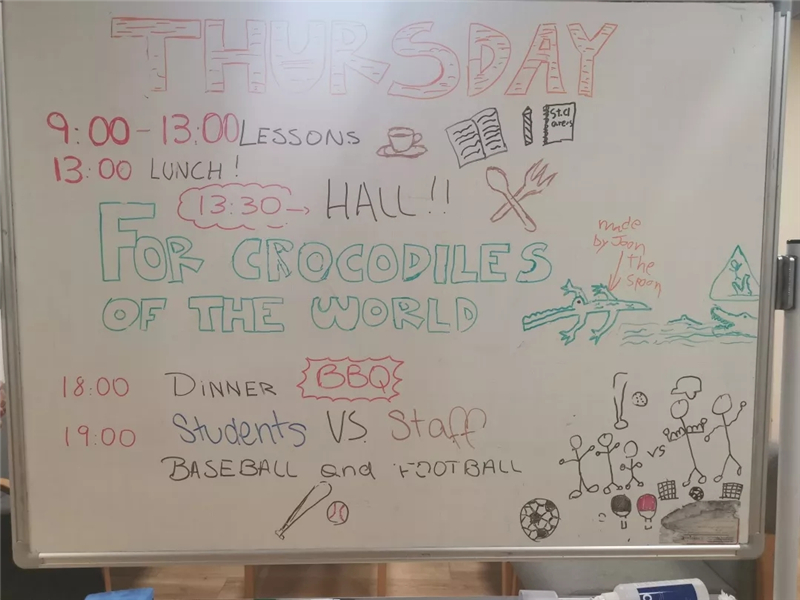 THURSDAY
9:00-13:00 LESSONS
13:00 LUNCH!
13:30 → HALL!!
FOR CROCODILES
OF THE WORLD
made
by Joan
the
spoon
18:00 DINNER BBQ
19:00 Students VS. Staff
BASEBALL and FOOTBALL
VS